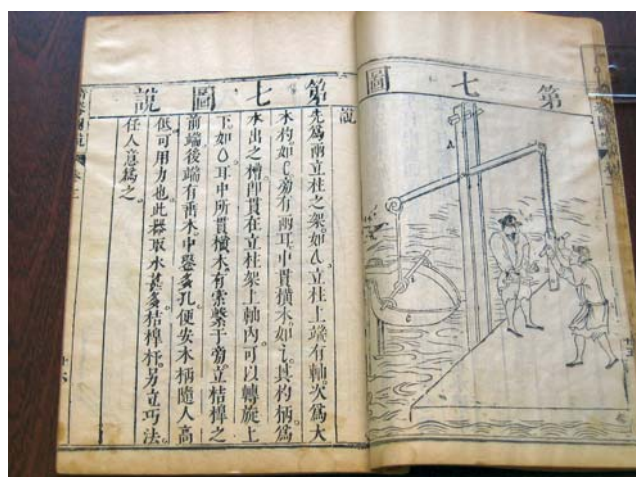 第七圖
第七圖說
說
先爲兩立柱之架。如 立柱上端有軸。次爲大
木杓。如 旁有兩耳。中貫橫木。如 其杓柄爲
水出之槽。即貫在立柱架上軸內。可以轉旋上
下。如 耳中所貫橫木。有索繫于旁。立桔槹之
前端。後端有 木。中鑿多孔。便安木柄。隨人高
低可用力也。此器取水甚多。桔槹杆。另立巧法
任人意爲之。
圖說